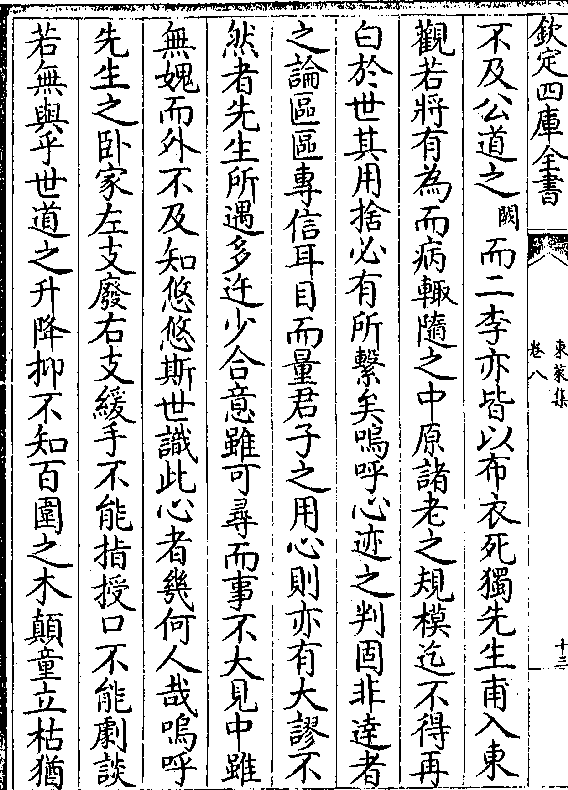 欽定四庫全書
東萊集
卷八
十三
不及公道之闕而二李亦皆以布衣死獨先生甫入東
觀若將有為而病輙隨之中原諸老之規模迄不得再
白於世其用捨必有所繫矣嗚呼心迹之判固非達者
之論區區專信耳目而量君子之用心則亦有大謬不
然者先生所遇多迕少合意雖可尋而事不大見中雖
無媿而外不及知悠悠斯世識此心者幾何人哉嗚呼
先生之卧家左支廢右支緩手不能指授口不能劇談
若無與乎世道之升降抑不知百圍之木顛童立枯猶